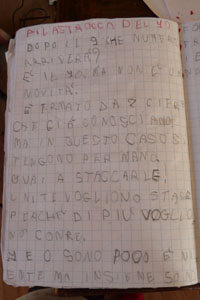 FILASTROCCA DEL 10
DOPO IL 9 CHE NUMERO
ARRIVERÀ?
È IL 10 MA NON È UNA
NOVITÀ.
È FORMATO DA 2 CIFRE
CHE GIÀ CONOSCIAMO
MA IN QUESTO CASO SI
TENGONO PER MANO
GUAI A STACCARLE
UNITE VOGLIONO STARE
PERCHÉ DI PIÙ VOGLIONO
CONTARE.
1 E 0 SONO POCO È NIENTE
MA INSIEME SON